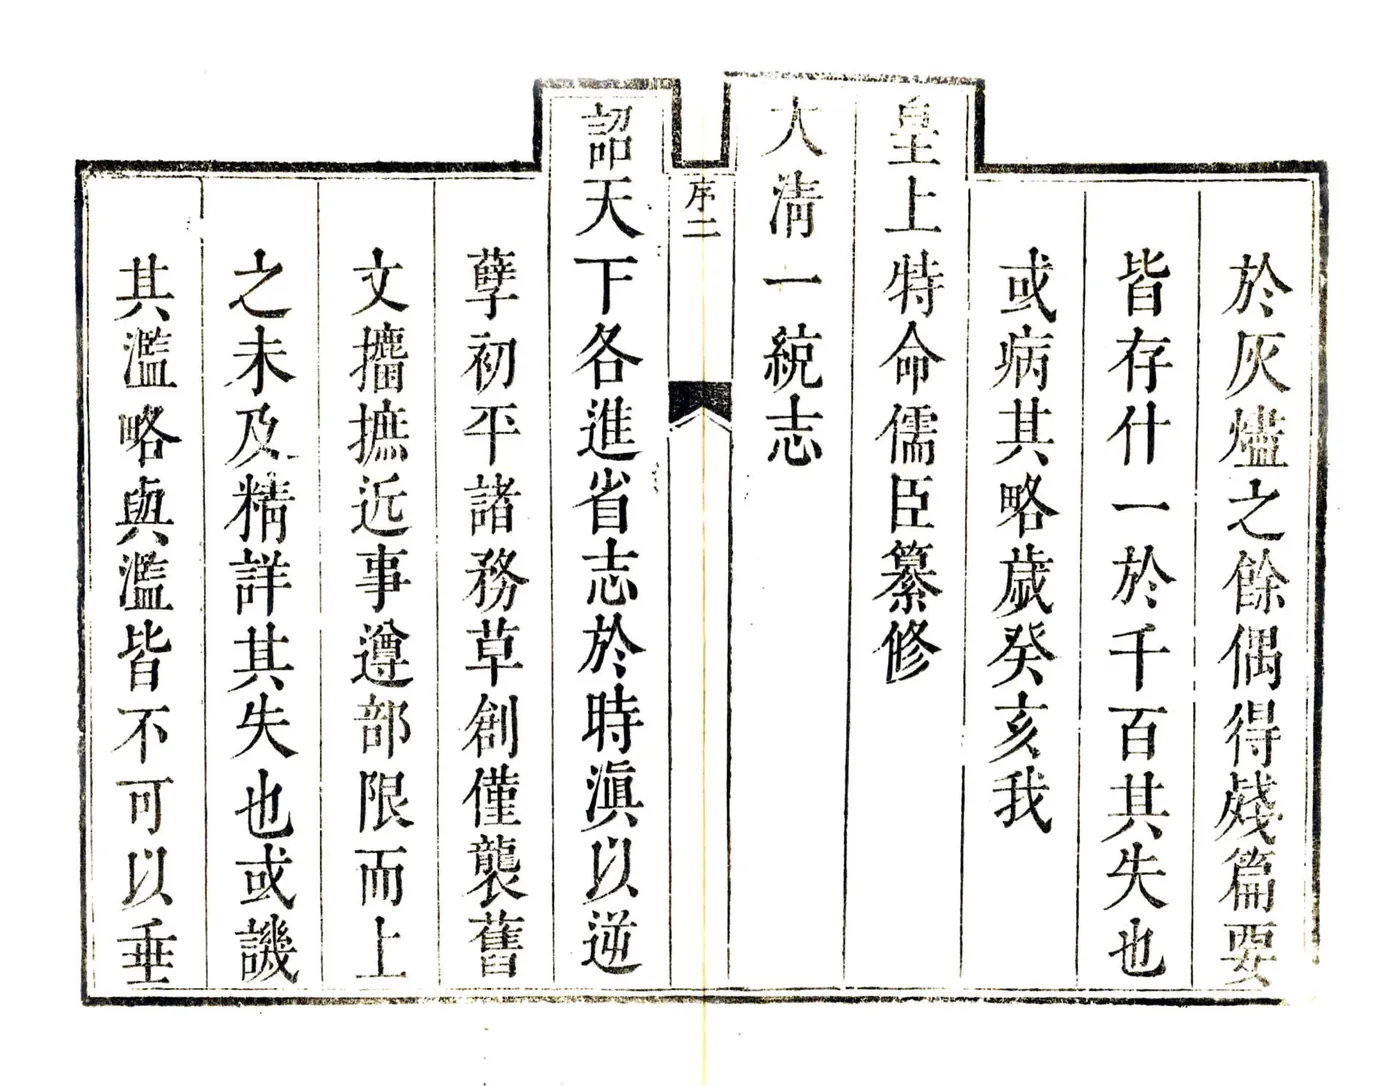 於灰燼之餘偶得殘篇要
皆存什一於千百其失也
或病其略歲癸亥我
皇上特命儒臣纂修
大淸一統志
序二
詔天下各進省志於時滇以逆
孽初平諸務草創僅襲舊
文攟摭近事遵部限而上
之未及精詳其失也或譏
其濫略與濫皆不可以垂